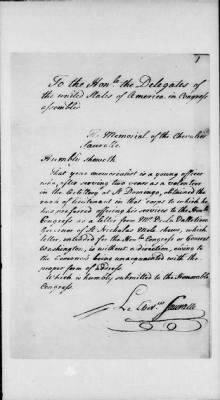 1
To the Honble the Delegates of
the united States of America in Congress
assembled
The Memorial of the Chevalier
Humbly sheweth
That your memorialist is a young officer
who, after serving two years as a volunteer
in the Artillery at St Domingo, obtained the
rank of lieutenant in that corps to which he
has preferred offering his services to the Honble
Congress as a letter from Mr
Governor of St Nicholas Mole shews, which
letter, intended for the Honble Congress or General
Washington, is without a direction, owing to
the Governor being unacquainted with the
proper form of address
Which is humbly submitted to the Honorable
Congress.
Le Chevr